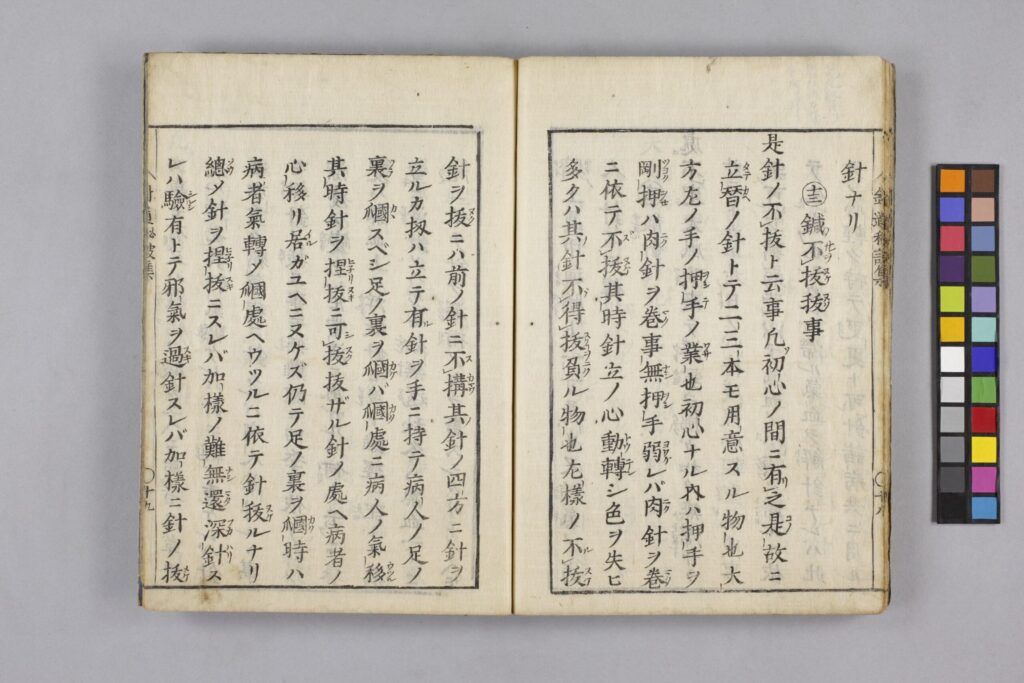 針ナリ
十三鍼不抜抜事
是針ノ不抜ト云事凡初心ノ間ニ有之是故ニ
立替ノ針トテ二三本モ用意スル物也大
方左ノ手ノ押手ノ業也初心ナル内ハ押手ヲ
剛押ハ肉針ヲ巻事無押手弱レバ肉針ヲ巻
ニ依テ不抜其時針立ノ心動轉シ色ヲ失ヒ
多クハ其針不得抜負ル物也左様ノ不抜
針ヲ抜ニハ前ノ針ニ不搆其針ノ四方ニ針ヲ
立ルカ扨ハ立テ有針ヲ手ニ持テ病人ノ足ノ
裏ヲスベシ足ノ裏ヲバ處ニ病人ノ氣移
其時針ヲ捏抜ニ可抜抜ザル針ノ處ヘ病者ノ
心移リ居ガユヘニヌケズ仍テ足ノ裏ヲ時ハ
病者氣轉メ處ヘウツルニ依テ針抜ルナリ
總メ針ヲ捏抜ニスレバ加様ノ難無還深針ス
レハ驗有トテ邪氣ヲ過針スレバ加様ニ針ノ抜
針道秘訣集
十八
十九